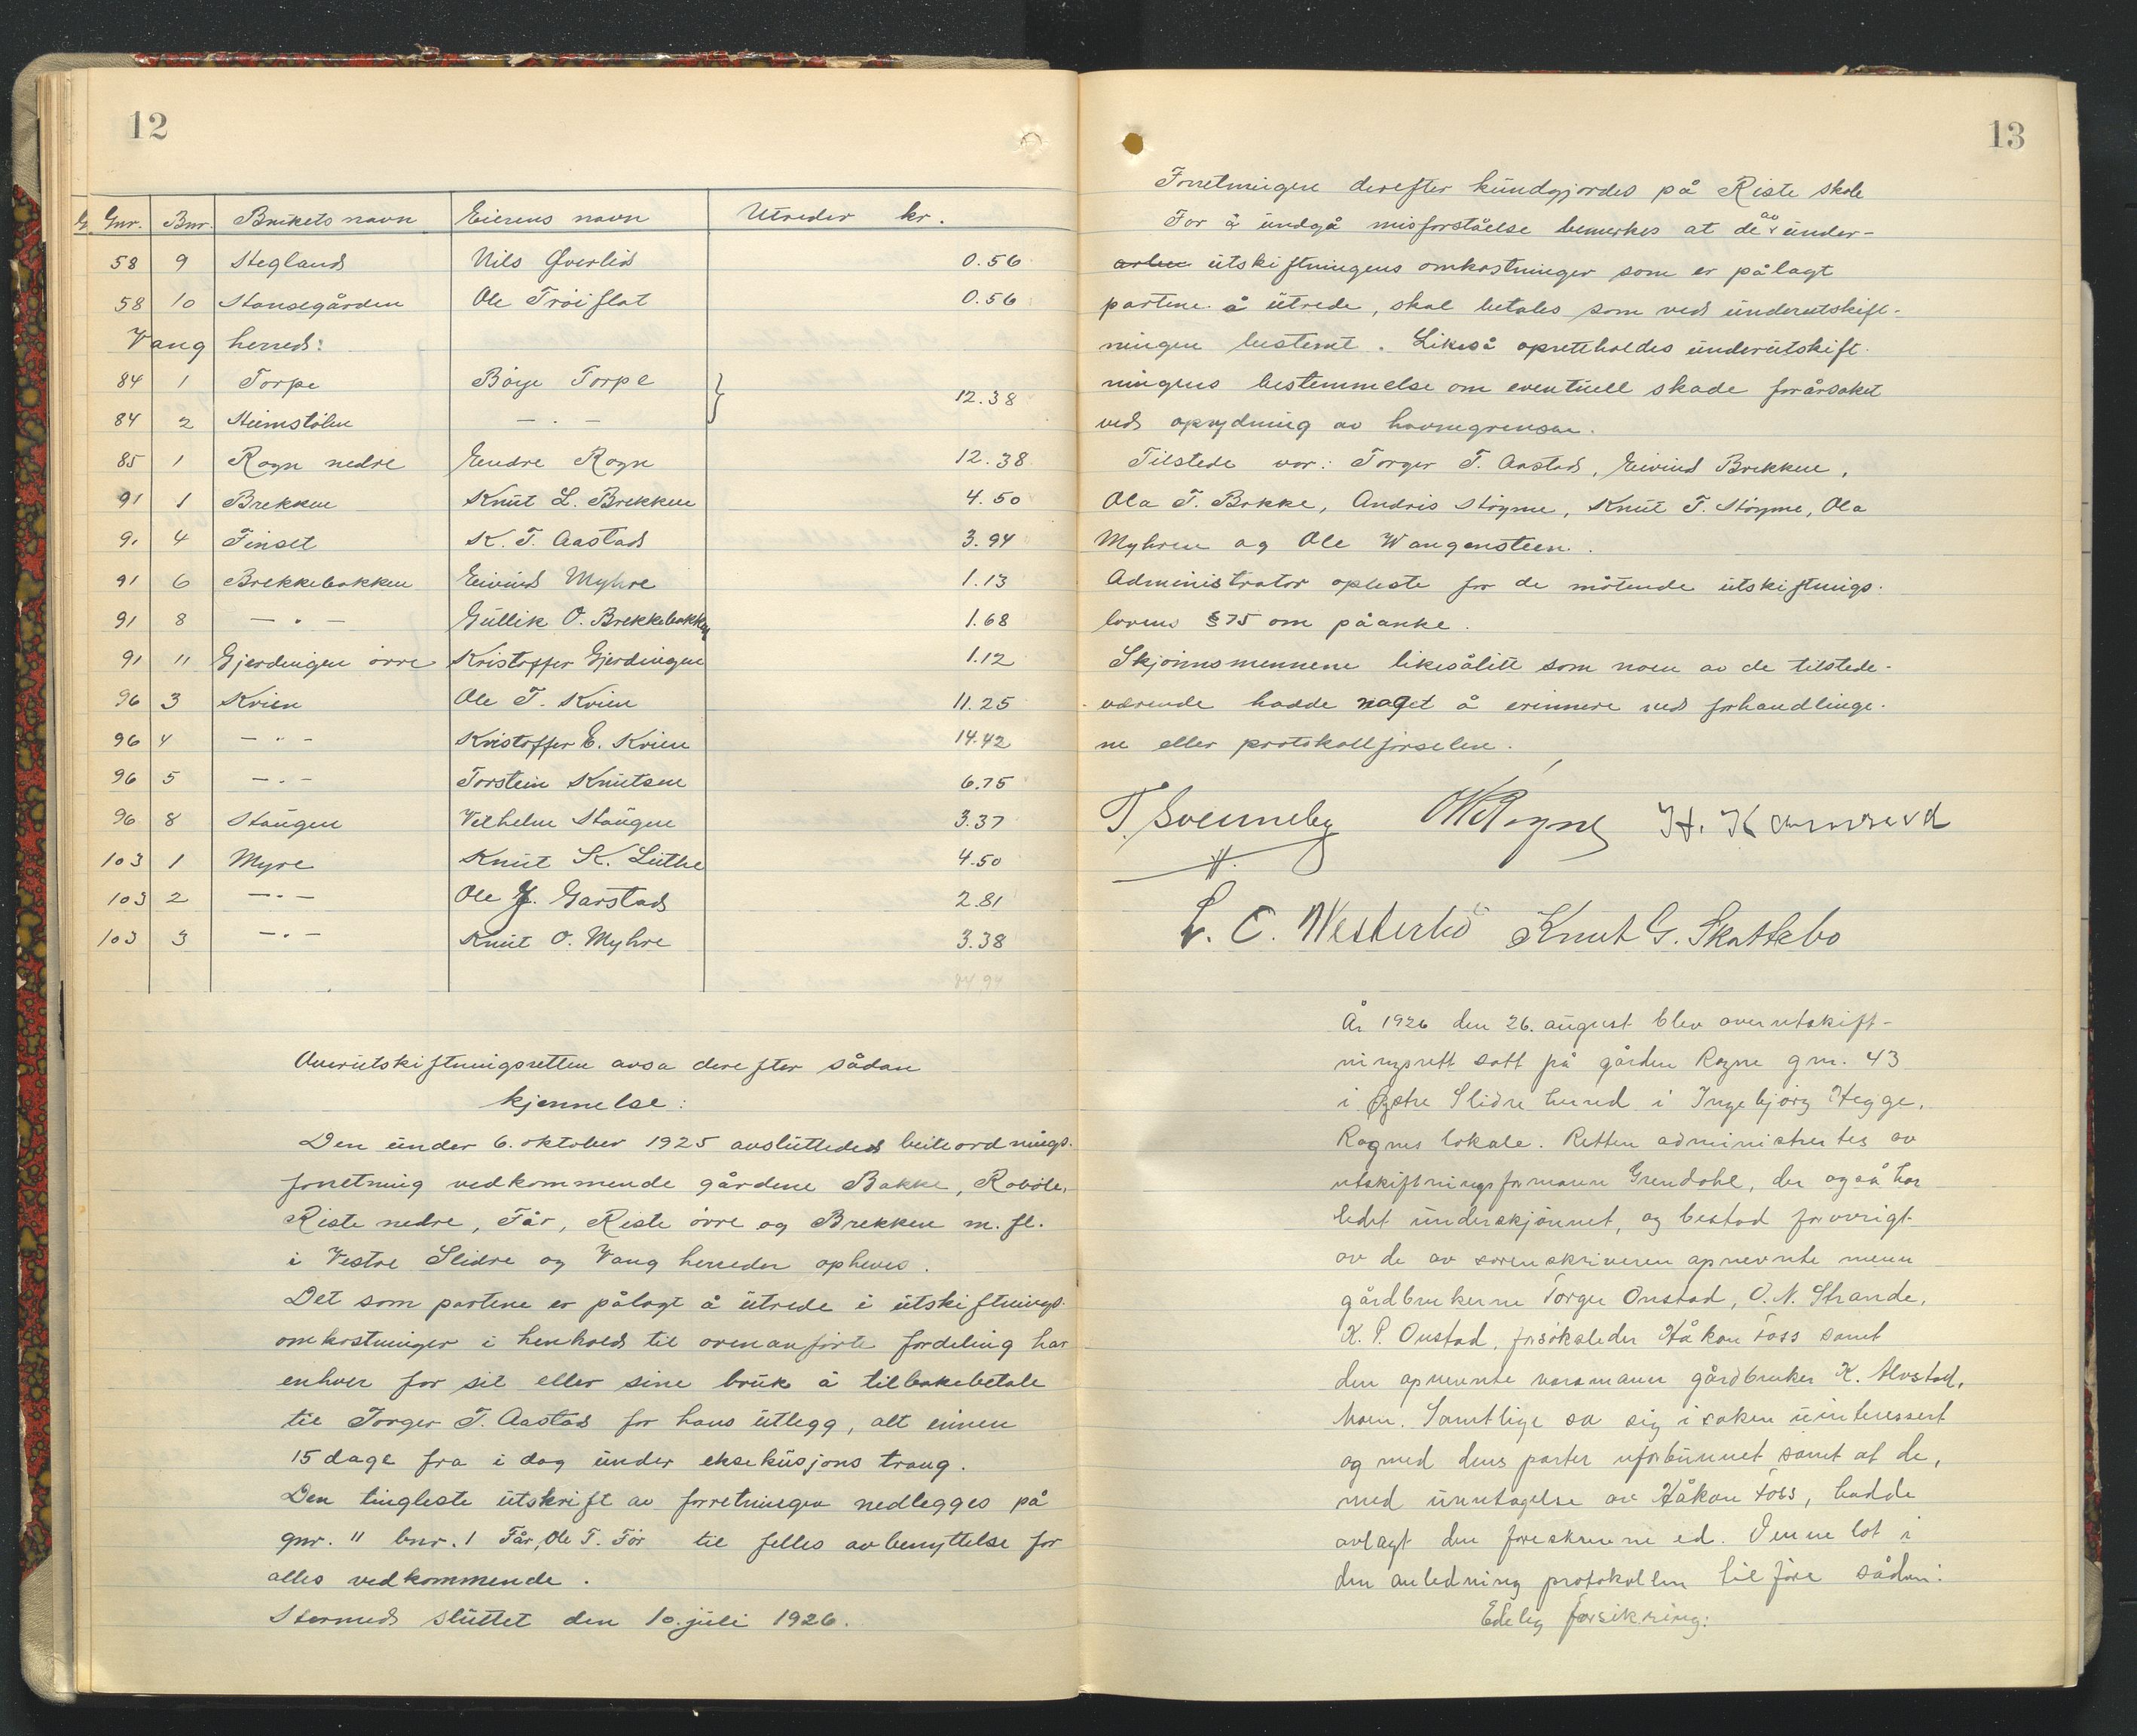 12
Gnr. Bnr. Brukets navn Eierens navn Utreder kr.
58 9 Stegland Nils Øverlid 0.56
58 10 Stansegården Ole Tröiflat 0.56
Vang herred:
84 1 Torpe Böye Torpe
12.38
84 2 Heimstölen — . —
85 1 Rogn nedre Endre Rogn 12.38
91 1 Brekken Knut L. Brekken 4.50
91 4 Finset K. T. Aastad 3.94
91 6 Brekkebakken Eivind Myhre 1.13
91 8 — . — Gullik O. Brekkebakken 1.68
91 11 Gjerdingen övre Kristoffer Gjerdingen 1.12
96 3 Kvien Ole T. Kvien 11.25
96 4 — " — Kristoffer E. Kvien 14.42
96 5 — . — Torstein Knutsen 6.75
96 8 Staugen Vilhelm Staugen 3.37
103 1 Myre Knut K. Luthe 4.50
103 2 — . — Ole J. Garstad 2.81
103 3 — . — Knut O. Myhre 3.38
Overutskiftningsretten avsa derefter sådan
kjennelse:
Den under 6. oktober 1925 avsluttede beiteordnings-
forretning vedkommende gårdene Bakke, Roböle,
Riste nedre, Får, Riste övre og Brekken m. fl.
i Vestre Slidre og Vang herreder opheves.
Det som partene er pålagt å utrede i utskiftnings-
omkostninger i henhold til ovenanförte fordeling har
enhver for sit eller sine bruk å tilbakebetale
til Torger T. Aastad for hans utlegg, alt innen
15 dage fra i dag under eksekusjons tvang.
Den tingleste utskrift av forretningen nedlegges på
gnr. 11 bnr. 1 Får, Ole T. För til felles avbenyttelse for
alles vedkommende.
Stermed sluttet den 10. juli 1926.
13
Forretningen derefter kundgjordes på Riste skole
For å undgå misforståelse bemerkes at de av under-
utskiftningens omkostninger som er pålagt
partene å utrede, skal betales som ved underutskift-
ningen bestemt. Likeså oprettholdes underutskift-
ningens bestemmelse om eventuell skade forårsaket
ved oprydning av havnegrensene.
Tilstede var: Torger T. Aastad, Eivind Brekken,
Ola T. Bakke, Andris Stöyme, Knut T. Stöyme, Ola
Myhren og Ole Wangensteen.
Administrator opleste for de mötende utskiftnings-
lovens § 75 om påanke.
Skjönnsmennene likesålitt som noen av de tilstede-
værende hadde noget å erinnere ved forhandlinge-
ne eller protokollförselen.
T. Svenneby OK Rogne H. Kamrud
L. C. Westerbö Knut G. Skattebo
År 1926 den 26. august blev overutskift-
ningsrett satt på gården Rogne gnr. 43
i Östre Slidre herred i Ingebjörg Hegge,
Rognes lokale. Retten administrertes av
utskiftningsformann Grendahl, der også har
ledet underskjönnet, og bestod forövrigt
av de av sorenskriveren opnevnte menn
gårdbrukerne Torger Onstad, O. N. Strande,
K. P. Onstad, forsöksleder Håkon Foss samt
den opnevnte varamann gårdbruker K. Alvstad,
Moen. Samtlige sa sig i saken uinteressert
og med dens parter uforbunnet samt at de,
med unntagelse av Håkon Foss, hadde
avlagt den foreskrevne ed. Denne lot i
den anledning protokollen tilföre sådan:
Edelig forsikring: